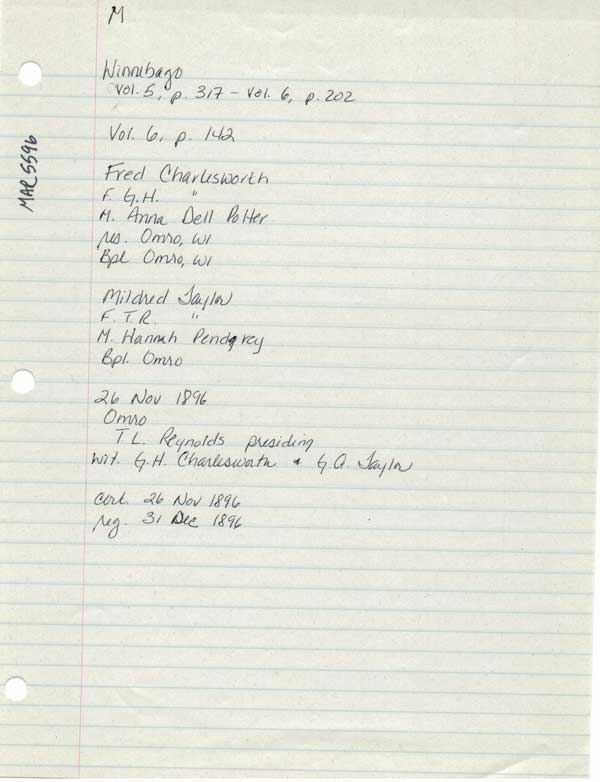 M
Winnebago
Vol. 5, p. 317 - Vol. 6, p. 202
Vol. 6, p. 142
MAR 5596
Fred Charlesworth
F. G.H. "
M. Anna Dell Potter
res. Omro, WI
Bpl Omro, WI
Mildred Taylor
F. T.R. "
M. Hannah
Bpl. Omro
26 Nov 1896
Omro
T.L. Reynolds presiding
wit. G.H. Charlesworth & G.A. Taylor
cert. 26 Nov 1896
reg. 31 Dec 1896